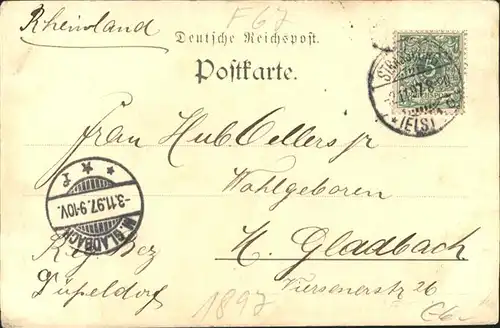 Rheinland
F67
Deutsche Reichspost.
Postkarte.
5
STRASSBURG
2.11.97. 8-
* (ELS)
Frau Hub Oellers jr
Wohlgeboren
M. Gladbach
Viersenerstr 26
Reg Bez
Düsseldorf
M. GLADBACH
-3.11.97. 9-10V.
* * f
1897